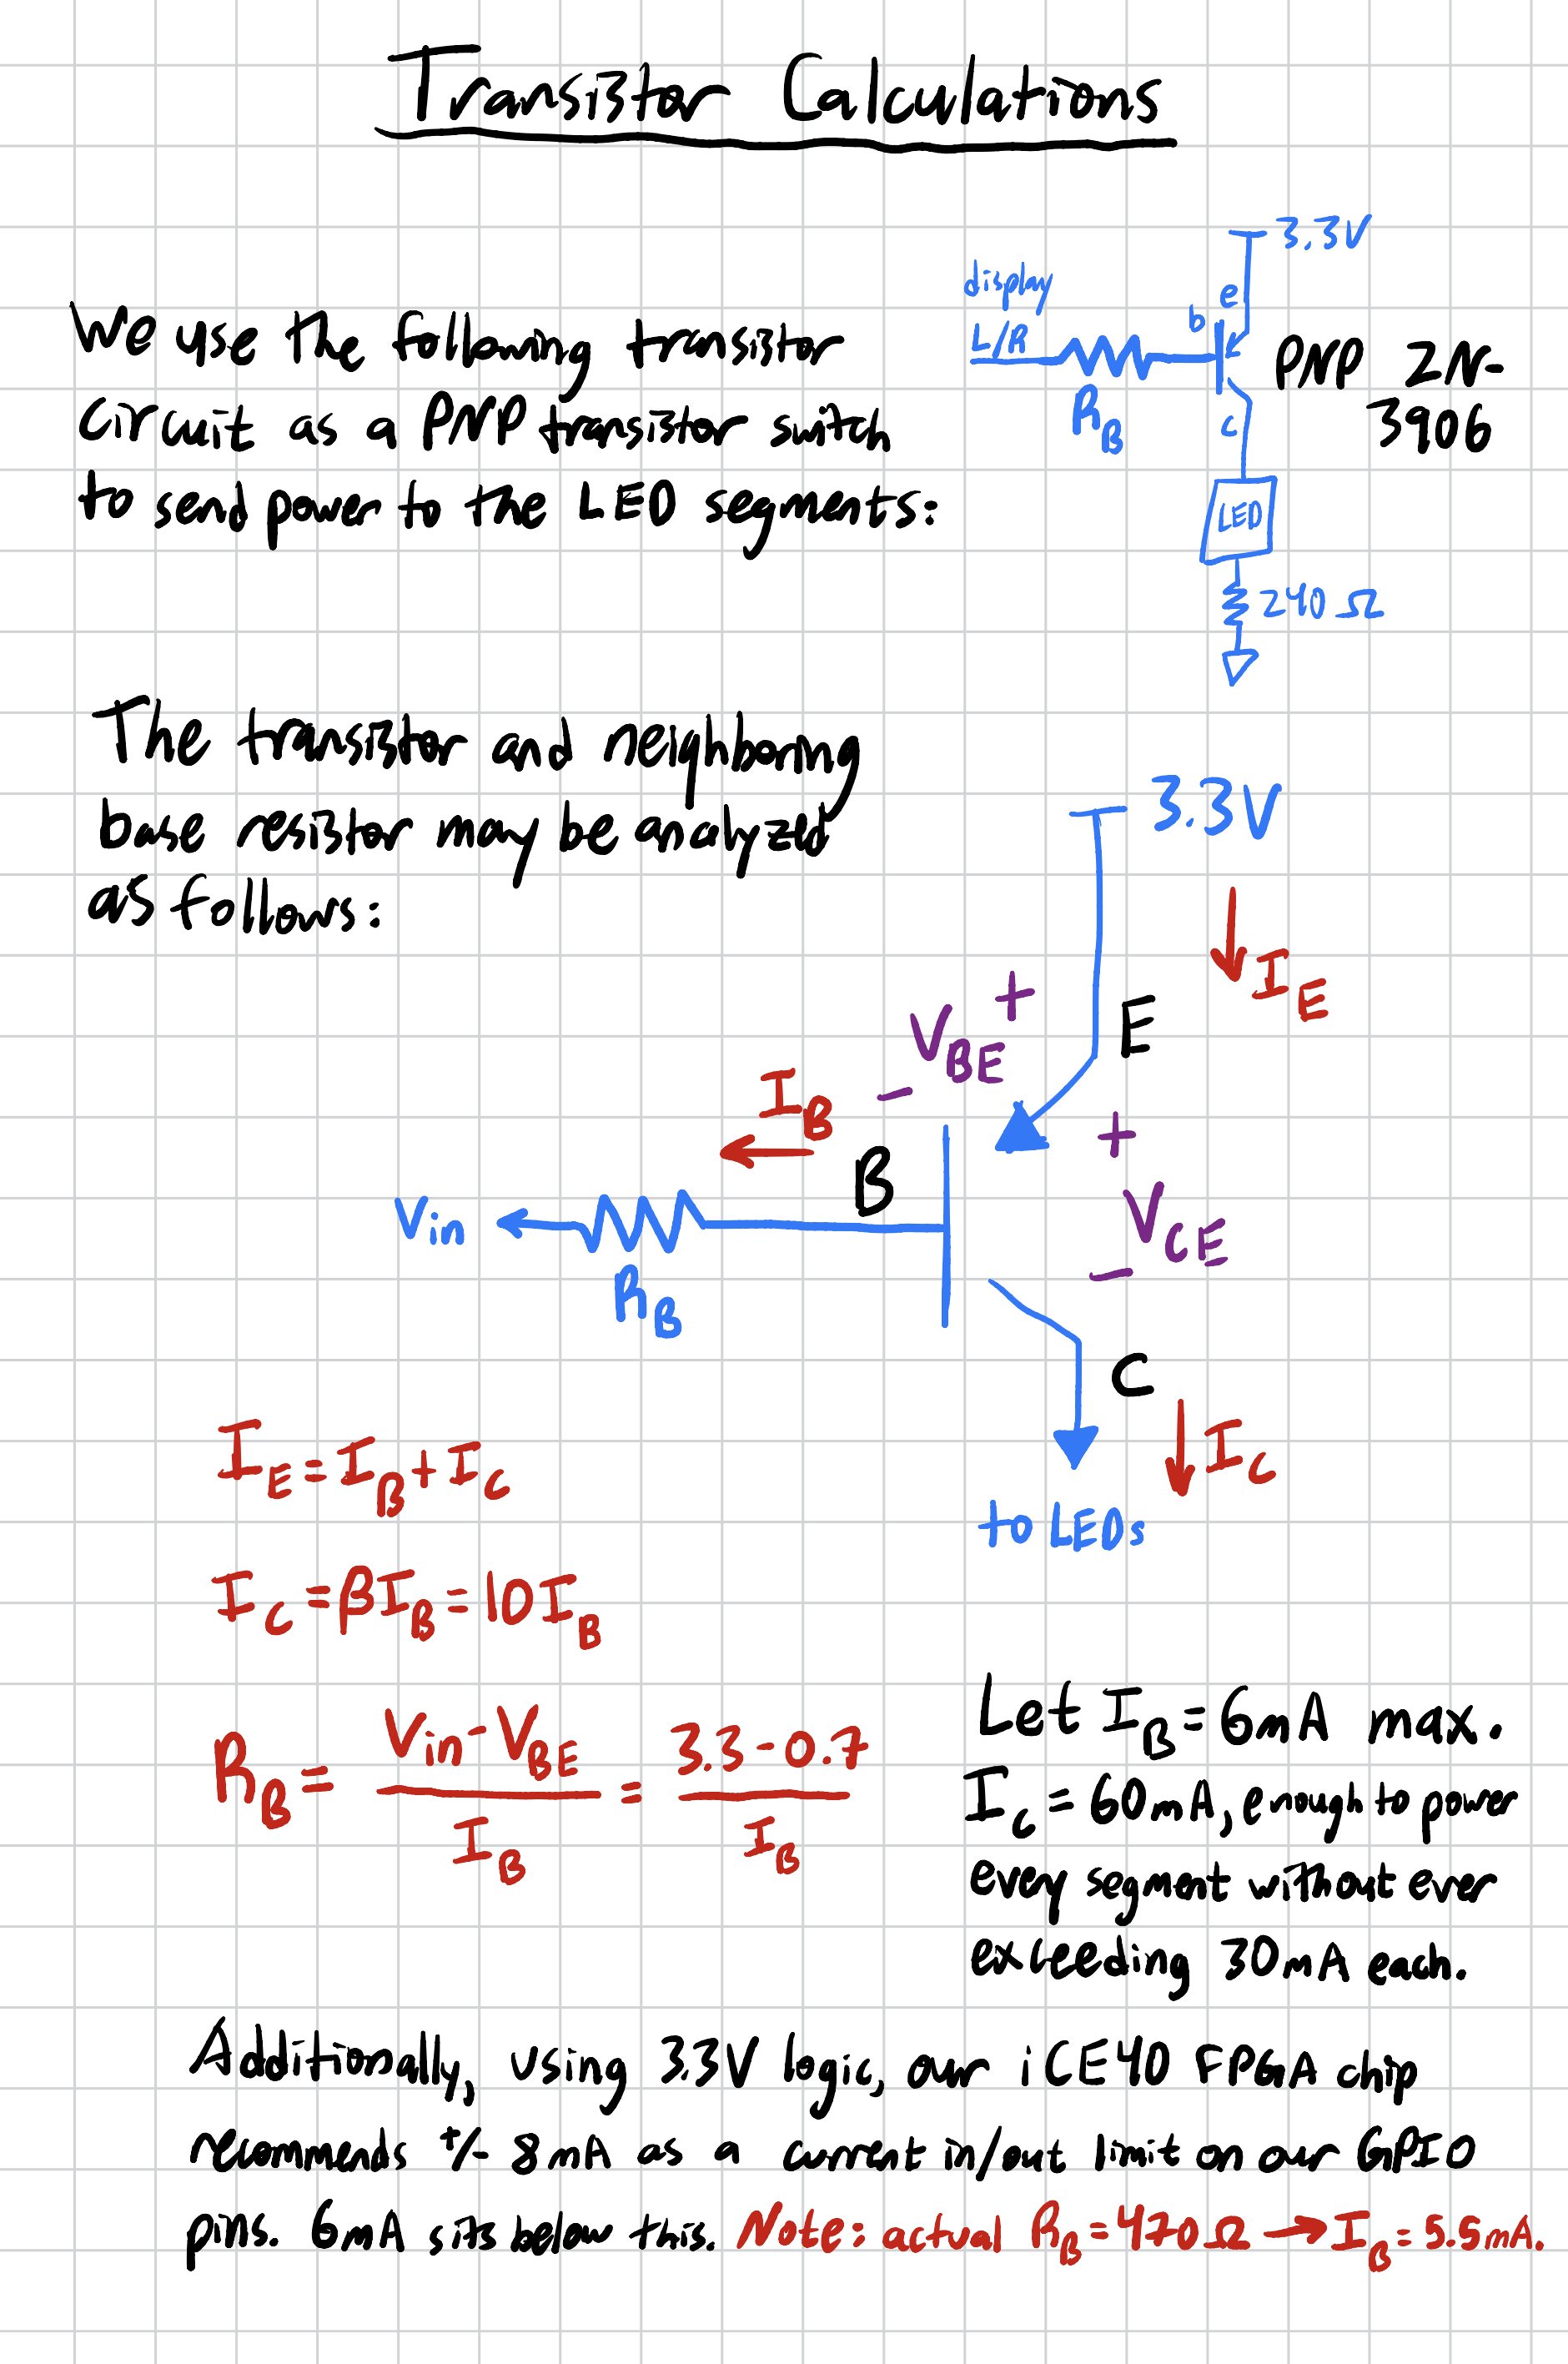 Transistor Calculations
We use the following transistor
circuit as a PNP transistor switch
to send power to the LED segments:
3.3V
display
L/R
R_B
b
e
c
PNP 2N-
3906
LED
240 Ω
The transistor and neighboring
base resistor may be analyzed
as follows:
3.3V
I_E
E
+
V_BE
-
I_B
B
+
V_CE
-
Vin
R_B
C
I_C
to LEDs
I_E = I_B + I_C
I_C = βI_B = 10I_B
R_B = (Vin - V_BE) / I_B = (3.3 - 0.7) / I_B
Let I_B = 6mA max.
I_C = 60mA, enough to power
every segment without ever
exceeding 30mA each.
Additionally, using 3.3V logic, our iCE40 FPGA chip
recommends +/- 8mA as a current in/out limit on our GPIO
pins. 6mA sits below this. Note: actual R_B = 470Ω → I_B = 5.5mA.